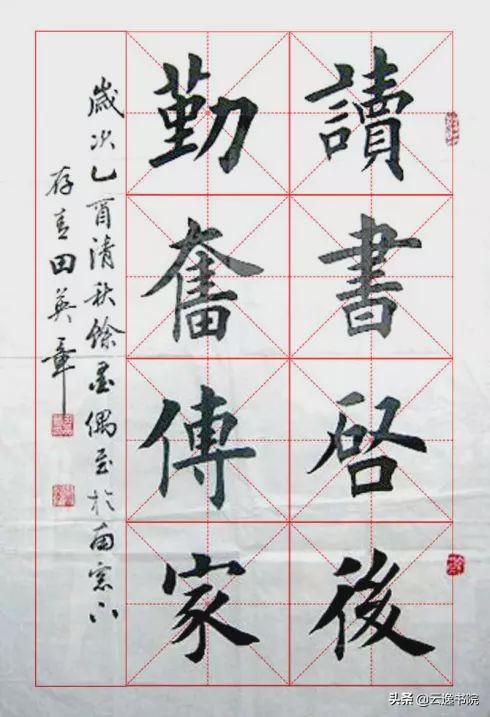 讀書啓後
勤奮傳家
歲次乙酉清秋餘墨偶至於南窓下
存青田英章
头条@云逸书院